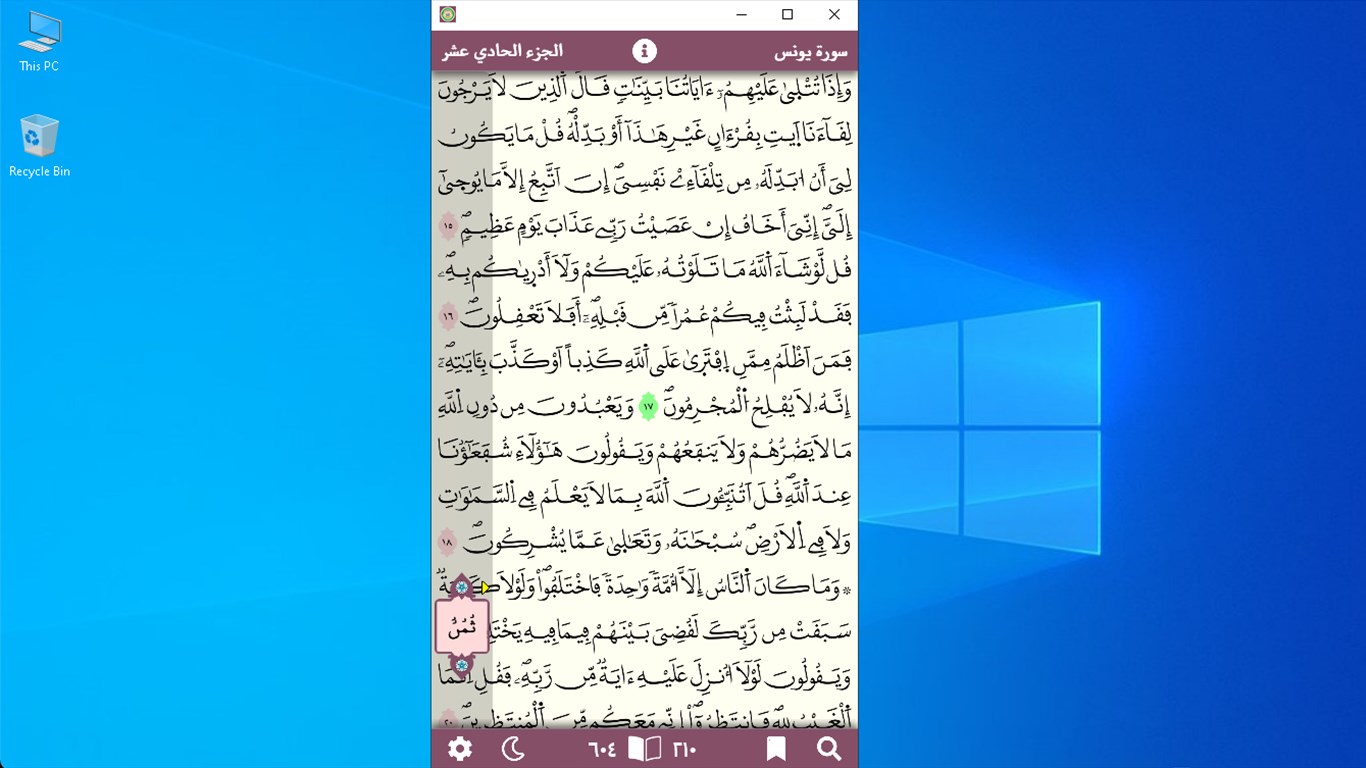 This PC
Recycle Bin
سورة يونس
الجزء الحادي عشر
وَإِذَا تُتْلَىٰ عَلَيْهِمُۥٓ ءَايَاتُنَا بَيِّنَٰتٖ قَالَ ٱلذِينَ لَا يَرْجُونَ
لِقَآءَنَا ٱيتِ بِقُرْءَانٍ غَيْرِ هَٰذَآ أَوْ بَدِّلْهُۖ قُلْ مَا يَكُونُ
لِيَ أَنُ ابَدِّلَهُۥ مِن تِلْقَآءِےْ نَفْسِيَۖ إِنَ اَتَّبِعُ إِلَّا مَا يُوح۪يٰٓ
إِلَيَّۖ إِنِّيَ أَخَافُ إِنْ عَصَيْتُ رَبِّے عَذَابَ يَوْمٍ عَظِيمٖۖ ١٥
قُل لَّوْ شَآءَ اَ۬للَّهُ مَا تَلَوْتُهُۥ عَلَيْكُمْ وَلَآ أَدْر۪يٰكُم بِهِۦۖ
فَقَدْ لَبِثْتُ فِيكُمْ عُمُراٗ مِّن قَبْلِهِۦٓۖ أَفَلَا تَعْقِلُونَۖ ١٦
فَمَنَ اَظْلَمُ مِمَّنِ اِ۪فْتَر۪يٰ عَلَى اَ۬للَّهِ كَذِباً اَوْ كَذَّبَ بِـَٔايَٰتِهِۦٓۖ
إِنَّهُۥ لَا يُفْلِحُ اُ۬لْمُجْرِمُونَۖ ١٧ وَيَعْبُدُونَ مِن دُونِ اِ۬للَّهِ
مَا لَا يَضُرُّهُمْ وَلَا يَنفَعُهُمْ وَيَقُولُونَ هَٰٓؤُلَآءِ شُفَعَٰٓؤُنَا
عِندَ اَ۬للَّهِۖ قُلَ اَتُنَبِّـُٔونَ اَ۬للَّهَ بِمَا لَا يَعْلَمُ فِے اِ۬لسَّمَٰوَٰتِ
وَلَا فِے اِ۬لَارْضِۖ سُبْحَٰنَهُۥ وَتَعَٰل۪يٰ عَمَّا يُشْرِكُونَۖ ١٨
* وَمَا كَانَ اَ۬لنَّاسُ إِلَّآ أُمَّةٗ وَٰحِدَةٗ فَاخْتَلَفُواْۖ وَلَوْلَا
سَبَقَتْ مِن رَّبِّكَ لَقُضِيَ بَيْنَهُمْ فِيمَا فِيهِ
ثُمُنٌ
وَيَقُولُونَ لَوْلَآ أُنزِلَ عَلَيْهِ ءَايَةٞ مِّن رَّبِّهِۦۖ فَقُلِ
اِ۪نَّمَا
اَ۬لْغَيْبُ لِلهِ فَانتَظِرُوٓاْۖ إِنِّے مَعَكُم مِّنَ اَ۬لْمُنتَظِرِينَۖ ٢٠
٦٠٤ ٢١٠